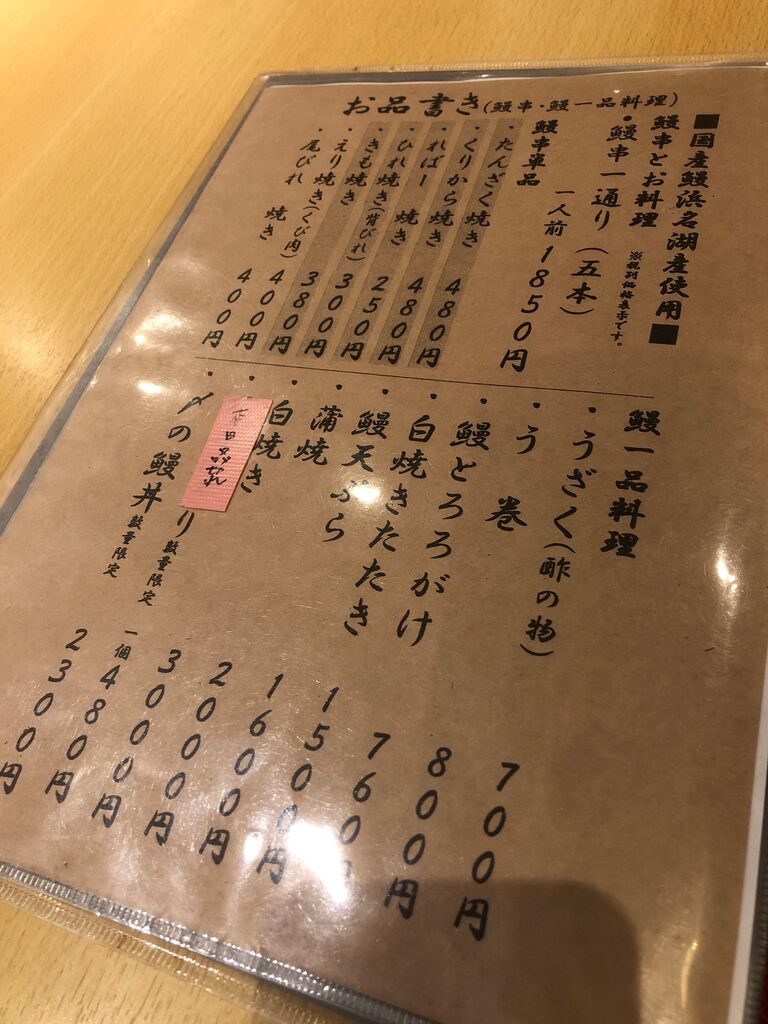 お品書き(鰻串・鰻一品料理)
■国産鰻浜名湖産使用■
鰻串とお料理 ※税別価格表示です。
・鰻串一通り(五本)
一人前 1850円
鰻串単品
・たんざく焼き 480円
・くりから焼き 480円
・ればー焼き 250円
・ひれ焼き(背びれ) 300円
・きも焼き 380円
・えり焼き(くび肉) 400円
・尾びれ焼き 400円
鰻一品料理
・うざく(酢の物) 700円
・う巻 800円
・鰻とろろがけ 760円
・白焼きたたき 1500円
・鰻天ぷら 1600円
・蒲焼 2000円
・白焼き 3000円
本日品切れ
り 数量限定 一個480円
・〆の鰻丼 数量限定 2300円